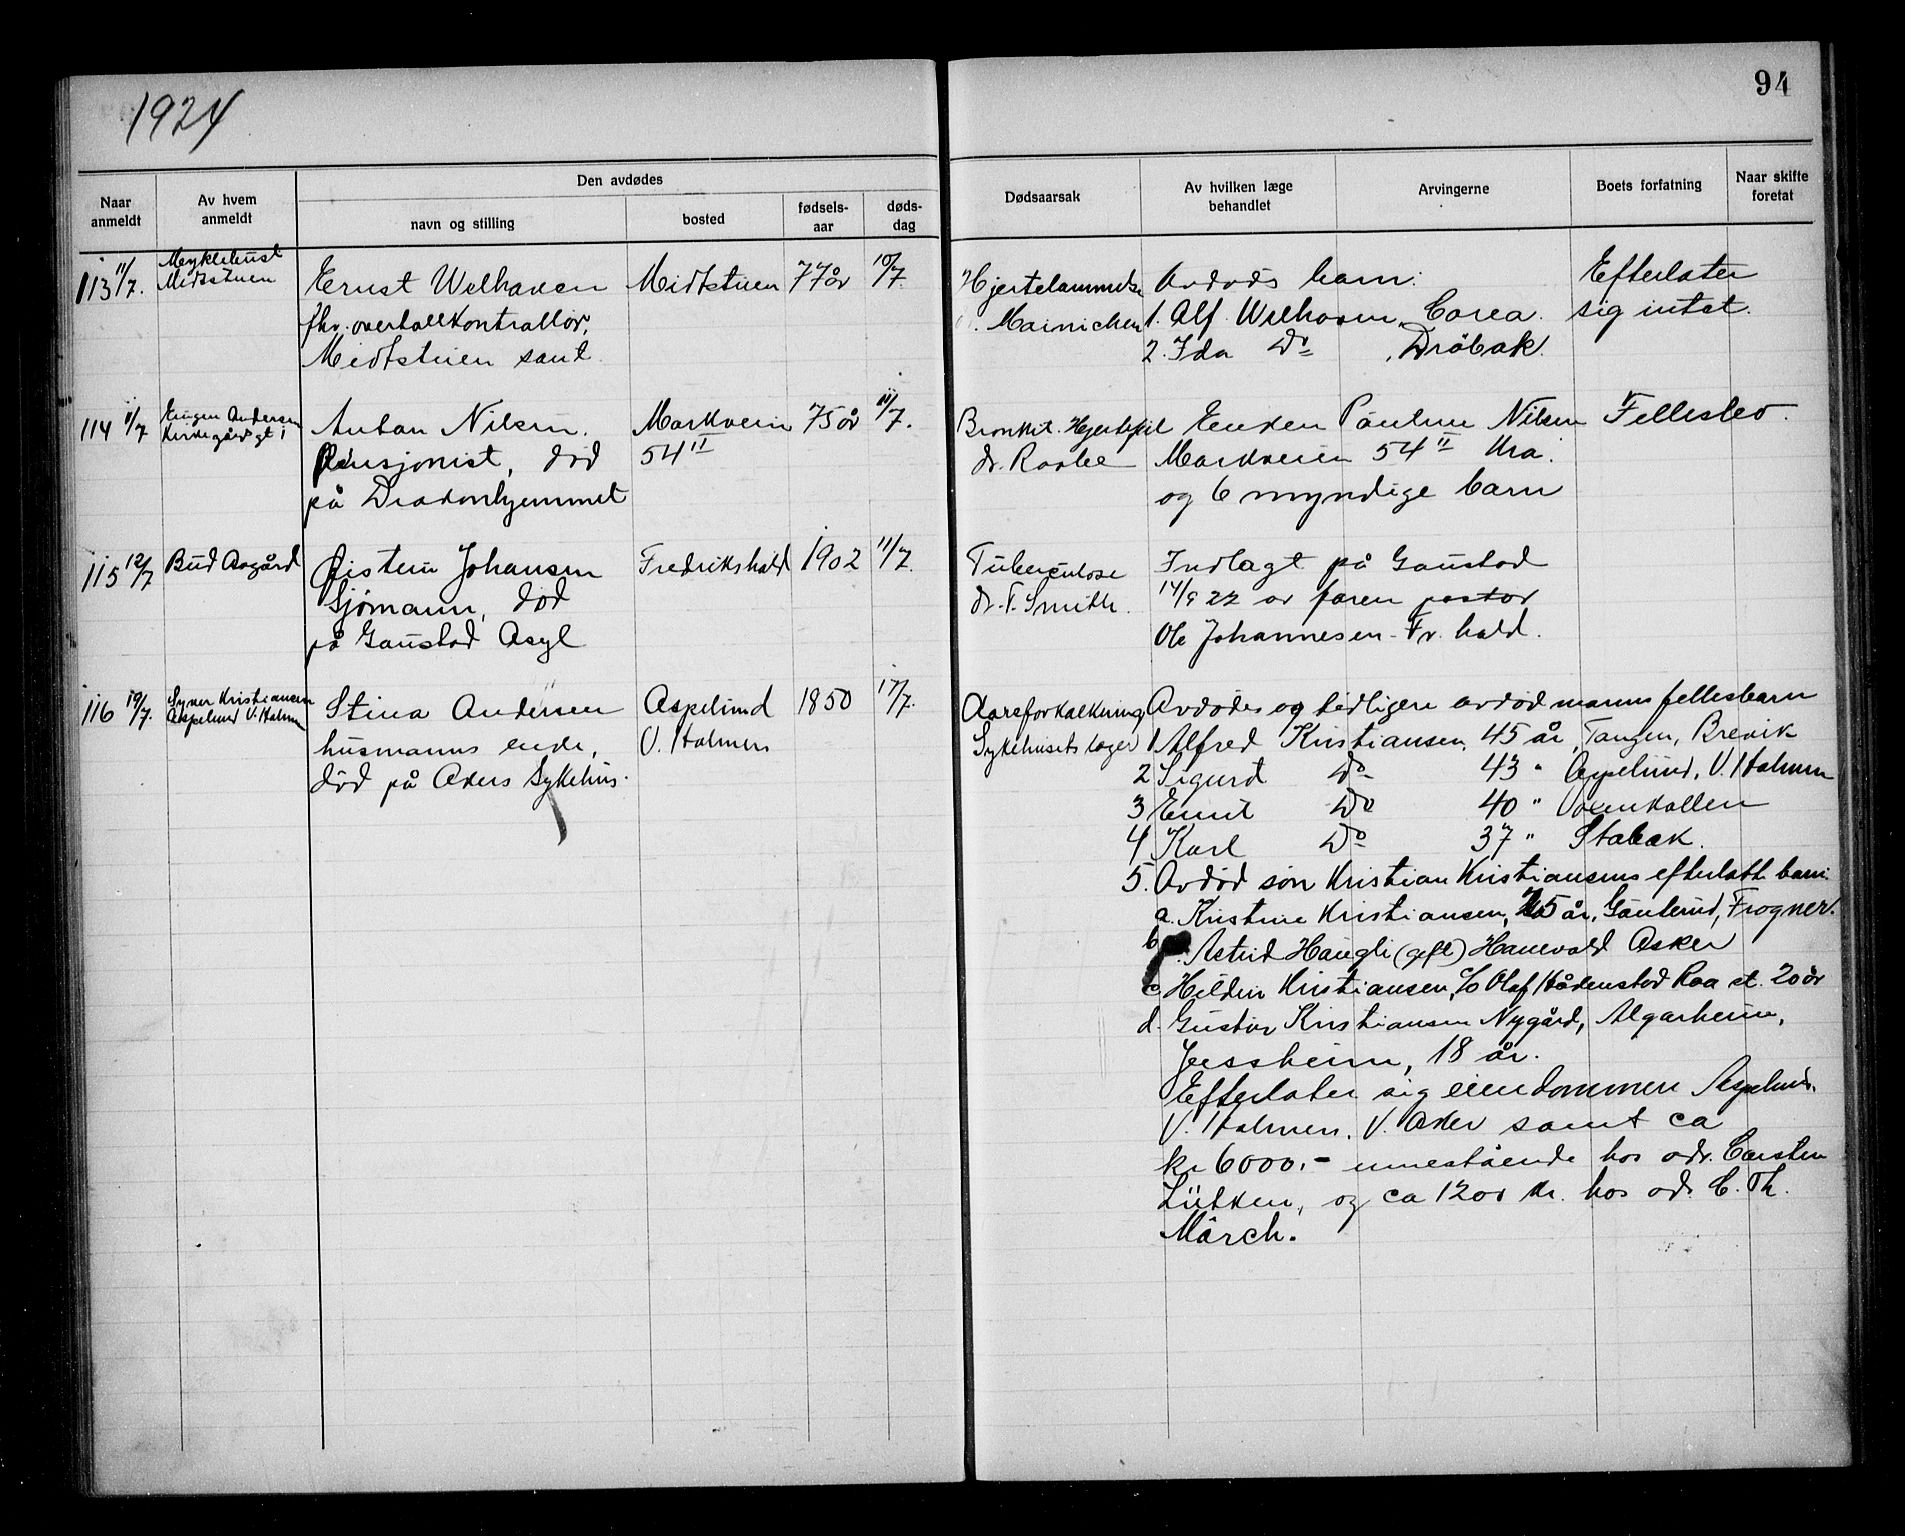 1924
94
Naar anmeldt
Av hvem anmeldt
Den avdødes
navn og stilling
bosted
fødsels-aar
døds-dag
Dødsaarsak
Av hvilken læge behandlet
Arvingerne
Boets forfatning
Naar skifte foretat
113 11/7. Myklebust Ernst Welhaven Midtstuen 77 år 10/7. Hjertelammelse Avdøds barn: Efterlater
Midtstuen fhv. overtollkontrollør, Mainichen 1. Alf Welhaven, Corea. sig intet.
Midtstuen sant 2. Ida Do , Drøbak.
114 11/7 Eugen Andersen Anton Nilsen. Markvein 75 år 11/7. Bronkit. Hjertefeil Enken Pauline Nilsen Fellesbo.
Kirkegårdsgt 1 Pensjonist, død 54 II dr. Raabe Markveien 54 II Kra.
på Diakonhjemmet og 6 myndige barn
115 12/7 Bud Asgård Øistein Johansen Fredrikshald 1902 11/7. Tuberculose Indlagt på Gaustad
Sjømann, død dr. T. Smith. 14/9 22 av faren pastor
på Gaustad Asyl Ole Johannesen Fr. hald.
116 19/7. Kristiansen Stina Andersen Aspelund 1850 17/7. Aareforkalkning Avdødes og tidligere avdød manns fellesbarn
Aspelund V. Holmen husmanns enke, V. Holmen Sykehusets læger 1 Alfred Kristiansen, 45 år, Tangen, Brevik
død på Akers Sykehus. 2 Sigurd Do 43 " Aspelund, V. Holmen
3 Emil Do 40 " Voxenkollen
4 Karl Do 37 " Stabæk.
5. Avdød søn Kristian Kristiansens efterlatte barn:
a. Kristine Kristiansen, 25 år, Frogner.
b. Astrid Haugli (gift) Hanevold Asker
c. Kristiansen, c/o Olaf Roa st. 20 år
d. Gustav Kristiansen Nygård, Algarheim,
Jessheim, 18 år.
Efterlater sig eiendommen Aspelund.
V. Holmen. V. Aker samt ca
kr 6000.- innestående hos adv. Carsten
Lütken, og ca 1200 kr. hos adv. C. Th.
Mörch.